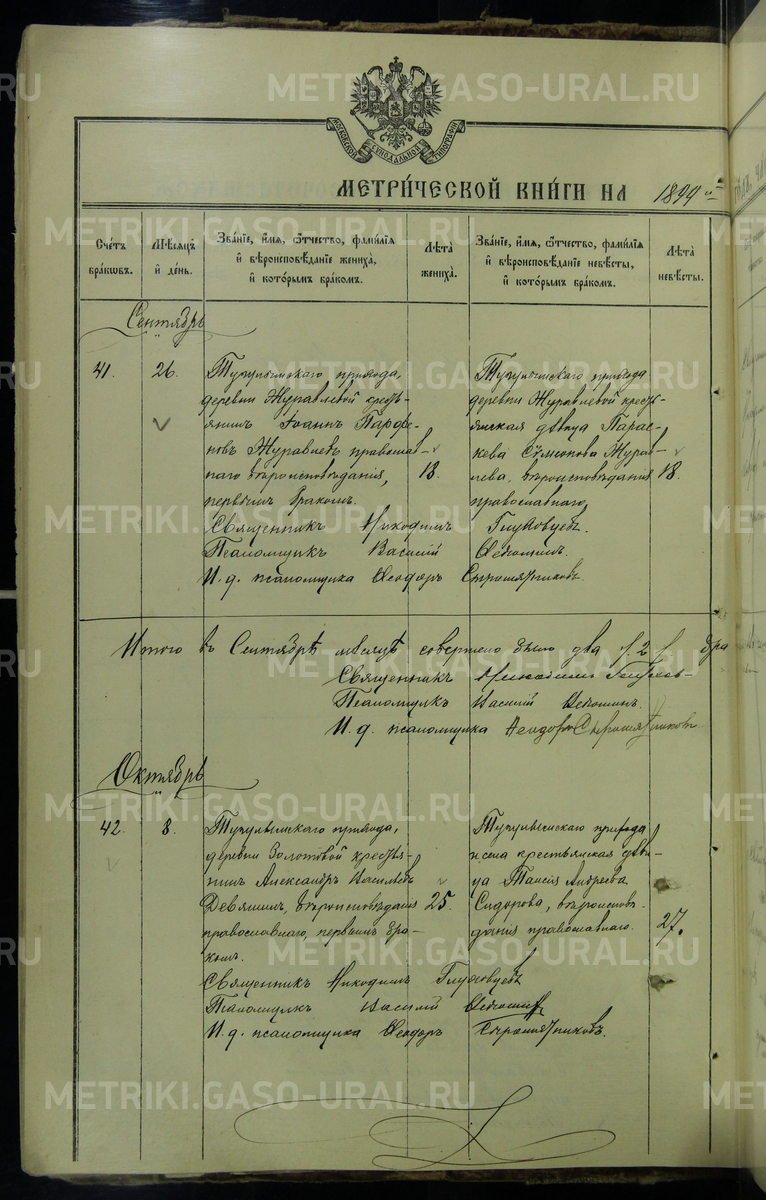 METRIKI.GASO-URAL.RU
МОСКОВСКОЙ СѴНОДАЛЬНОЙ ТИПОГРАФІИ
МЕТРИ́ЧЕСКОЙ КНИ́ГИ НА 1899
Счетъ бракωвъ.
Мѣсяцъ и҆ день.
Зва́нїе, и҆́мя, ѻ҆́тчество, фами́лїя и҆ вѣроисповѣ́данїе жениха̀, и҆ кото́рымъ бра́комъ.
Лѣ́та жениха̀.
Зва́нїе, и҆́мя, ѻ҆́тчество, фами́лїя и҆ вѣроисповѣ́данїе невѣ́сты, и҆ кото́рымъ бра́комъ.
Лѣ́та невѣ́сты.
Сентябрь
41. 26.
Тугулымскаго прихода,
деревни Журавлевой кресть-
янинъ Іоаннъ Парфе-
новъ Журавлевъ православ-
наго вѣроисповѣданія, 18.
первымъ бракомъ.
Тугулымскаго прихода
деревни Журавлевой кресть-
янская дѣвица Парас-
кева Сѵмеонова Журав-
лева, вѣроисповѣданія 18.
православнаго,
Священникъ Никодимъ Глуховцевъ.
Псаломщикъ Василій
И. д. псаломщика Ѳеодоръ Сыромятниковъ.
Итого въ Сентябрѣ мѣсяцѣ совершено было два /. 2 /. бра
Священникъ Никодимъ
Псаломщикъ Василій
И. д. псаломщика Ѳеодоръ Сыромятниковъ
Октябрь
42. 8.
Тугулымскаго прихода,
деревни Золотовой кресть-
янинъ Александръ Васильевъ
Девяшинъ, вѣроисповѣданія 25.
православнаго, первымъ бра-
комъ.
Тугулымскаго прихода
и села крестьянская дѣви-
ца Таисія Андреева
Сидорова, вѣроисповѣ-
данія православнаго. 27.
Священникъ Никодимъ Глуховцевъ
Псаломщикъ Василій
И. д. псаломщика Ѳеодоръ Сыромятниковъ.